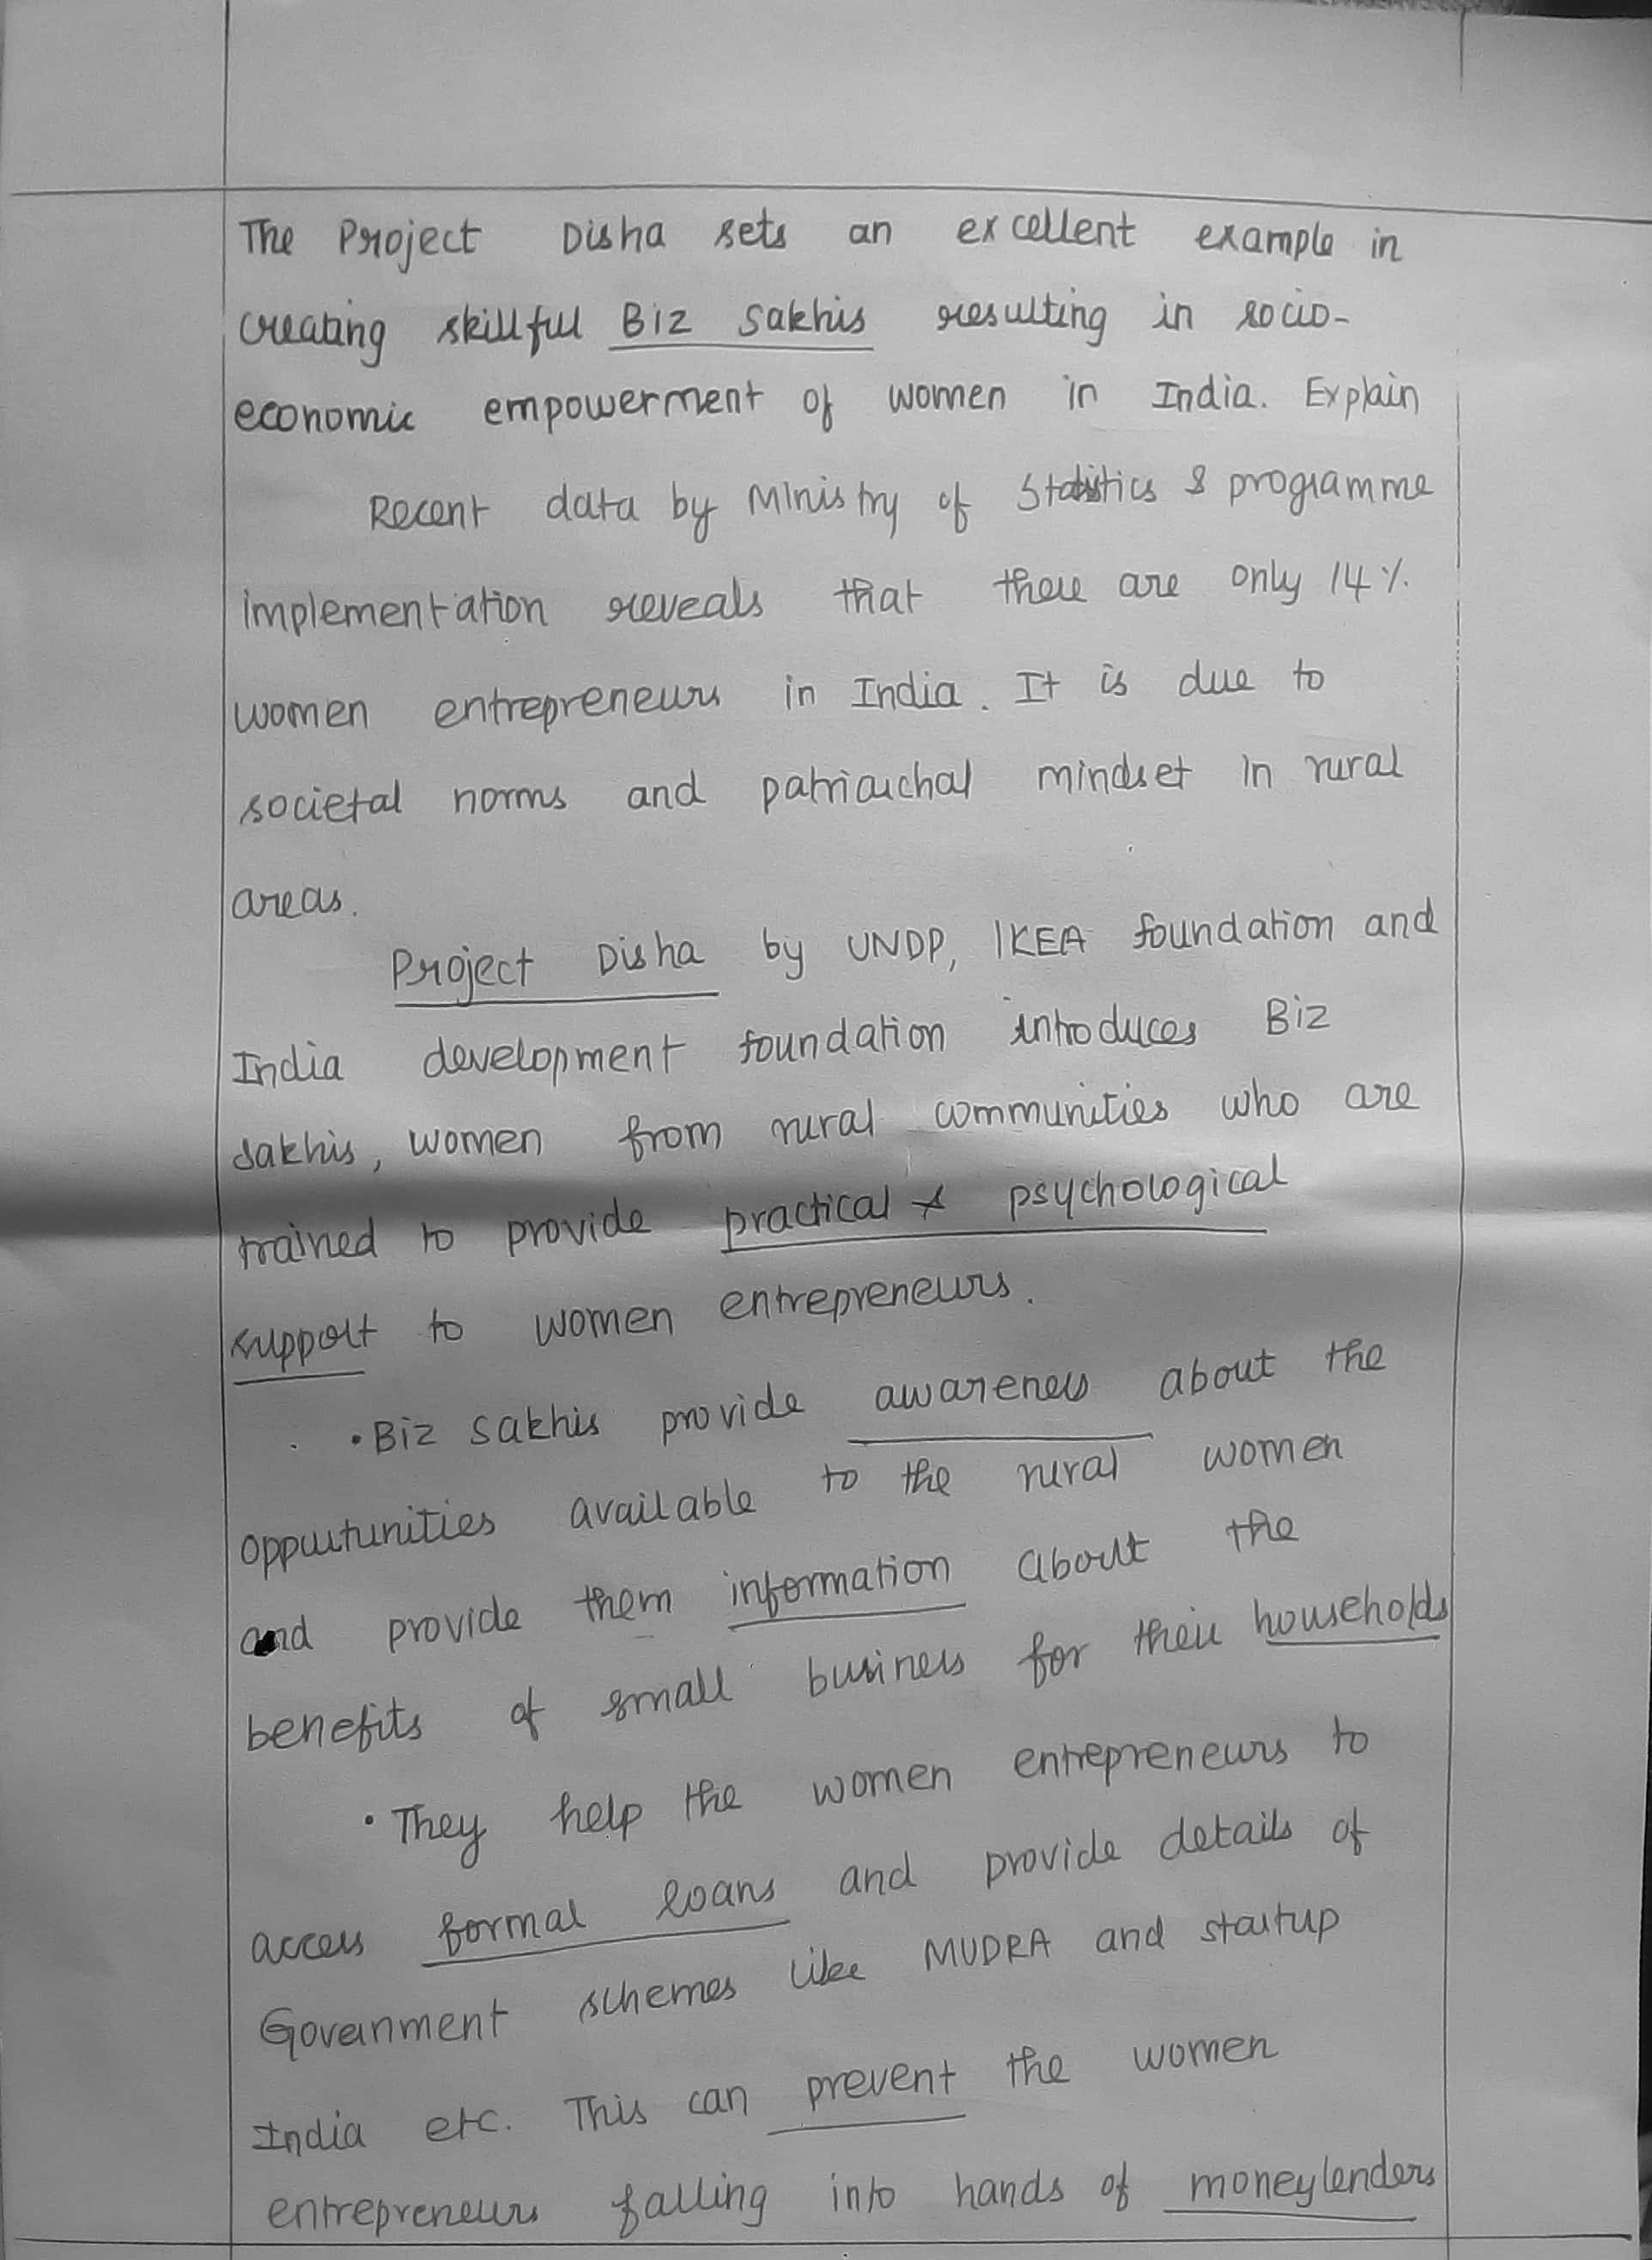 The Project Disha sets an excellent example in
creating skillful Biz Sakhis resulting in socio-
economic empowerment of women in India. Explain
Recent data by Ministry of Statistics & programme
implementation reveals that there are only 14%
women entrepreneurs in India. It is due to
societal norms and patriarchal mindset in rural
areas.
Project Disha by UNDP, IKEA foundation and
India development foundation introduces Biz
sakhis, women from rural communities who are
trained to provide practical & psychological
support to women entrepreneurs.
• Biz sakhis provide awareness about the
opportunities available to the rural women
and provide them information about the
benefits of small business for their households
• They help the women entrepreneurs to
access formal loans and provide details of
Government schemes like MUDRA and startup
India etc. This can prevent the women
entrepreneurs falling into hands of moneylenders